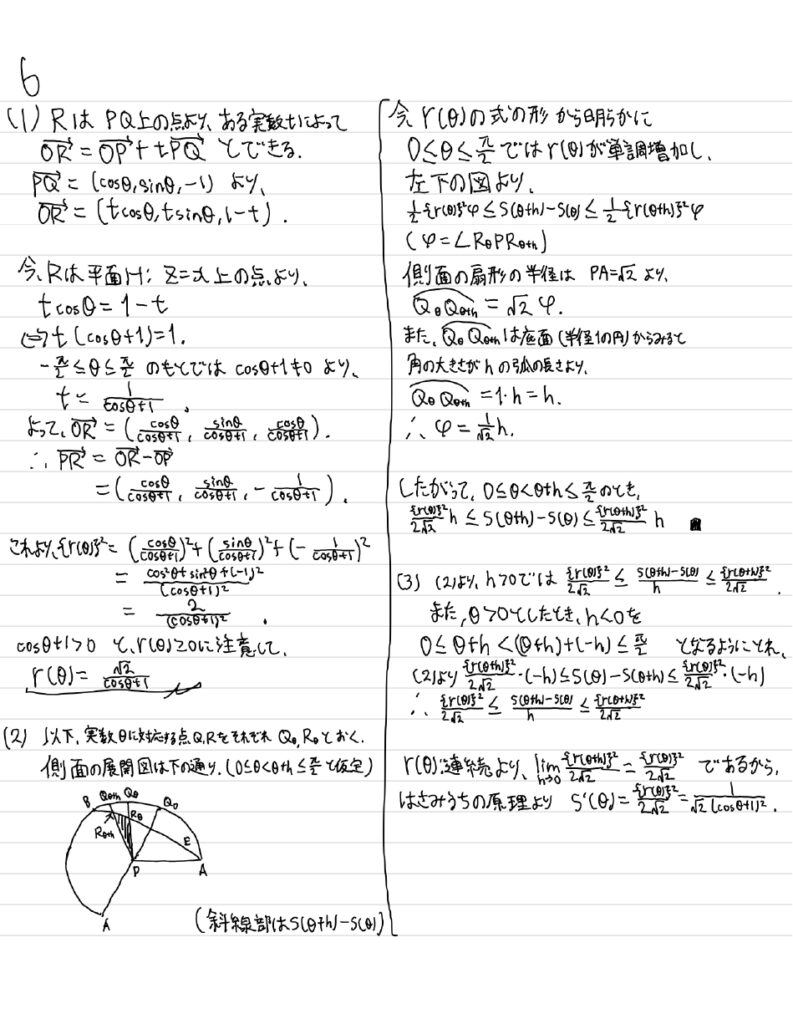 6
(1) Rは PQ上の点より、ある実数tによって
→OR = →OP + t→PQ とできる.
→PQ = (cosθ, sinθ, -1) より、
→OR = (tcosθ, tsinθ, 1-t).
今、Rは平面H: Z=x 上の点より、
tcosθ = 1-t
⇔ t(cosθ+1)=1.
-π/2≦θ≦π/2 のもとでは cosθ+1≠0 より、
t = 1/(cosθ+1).
よって、→OR = (cosθ/(cosθ+1), sinθ/(cosθ+1), cosθ/(cosθ+1)).
∴ →PR = →OR - →OP
= (cosθ/(cosθ+1), sinθ/(cosθ+1), -1/(cosθ+1)).
これより、{r(θ)}² = (cosθ/(cosθ+1))² + (sinθ/(cosθ+1))² + (-1/(cosθ+1))²
= (cos²θ+sin²θ+(-1)²)/(cosθ+1)²
= 2/(cosθ+1)².
cosθ+1>0 と、r(θ)≧0に注意して、
r(θ) = √2/(cosθ+1)
(2) 以下、実数θに対応する点Q,RをそれぞれQθ, Rθとおく.
側面の展開図は下の通り. (0≦θ<θ+h≦π/2と仮定)
B Qθ+h Qθ Q0
Rθ+h Rθ E
P A
A
(斜線部はS(θ+h)-S(θ))
今 r(θ)の式の形から明らかに
0≦θ≦π/2 ではr(θ)が単調増加し、
左下の図より、
1/2{r(θ)}²φ ≦ S(θ+h)-S(θ) ≦ 1/2{r(θ+h)}²φ
(φ=∠RθPRθ+h)
側面の扇形の半径は PA=√2 より、
⌒QθQθ+h = √2 φ.
また、⌒QθQθ+hは底面(半径1の円)からみると
角の大きさがhの弧の長さより、
⌒QθQθ+h = 1・h = h.
∴ φ = 1/√2 h.
したがって、0≦θ<θ+h≦π/2のとき、
{r(θ)}²/2√2 h ≦ S(θ+h)-S(θ) ≦ {r(θ+h)}²/2√2 h ■
(3) (2)より、h>0では {r(θ)}²/2√2 ≦ (S(θ+h)-S(θ))/h ≦ {r(θ+h)}²/2√2.
また、θ>0としたとき、h<0を
0≦θ+h<(θ+h)+(-h)≦π/2 となるようにとれ、
(2)より {r(θ+h)}²/2√2・(-h)≦S(θ)-S(θ+h)≦{r(θ)}²/2√2・(-h)
∴ {r(θ)}²/2√2 ≦ (S(θ+h)-S(θ))/h ≦ {r(θ+h)}²/2√2
r(θ)の連続より、lim h→0 {r(θ+h)}²/2√2 = {r(θ)}²/2√2 であるから、
はさみうちの原理より S'(θ) = {r(θ)}²/2√2 = 1/(√2(cosθ+1)²).